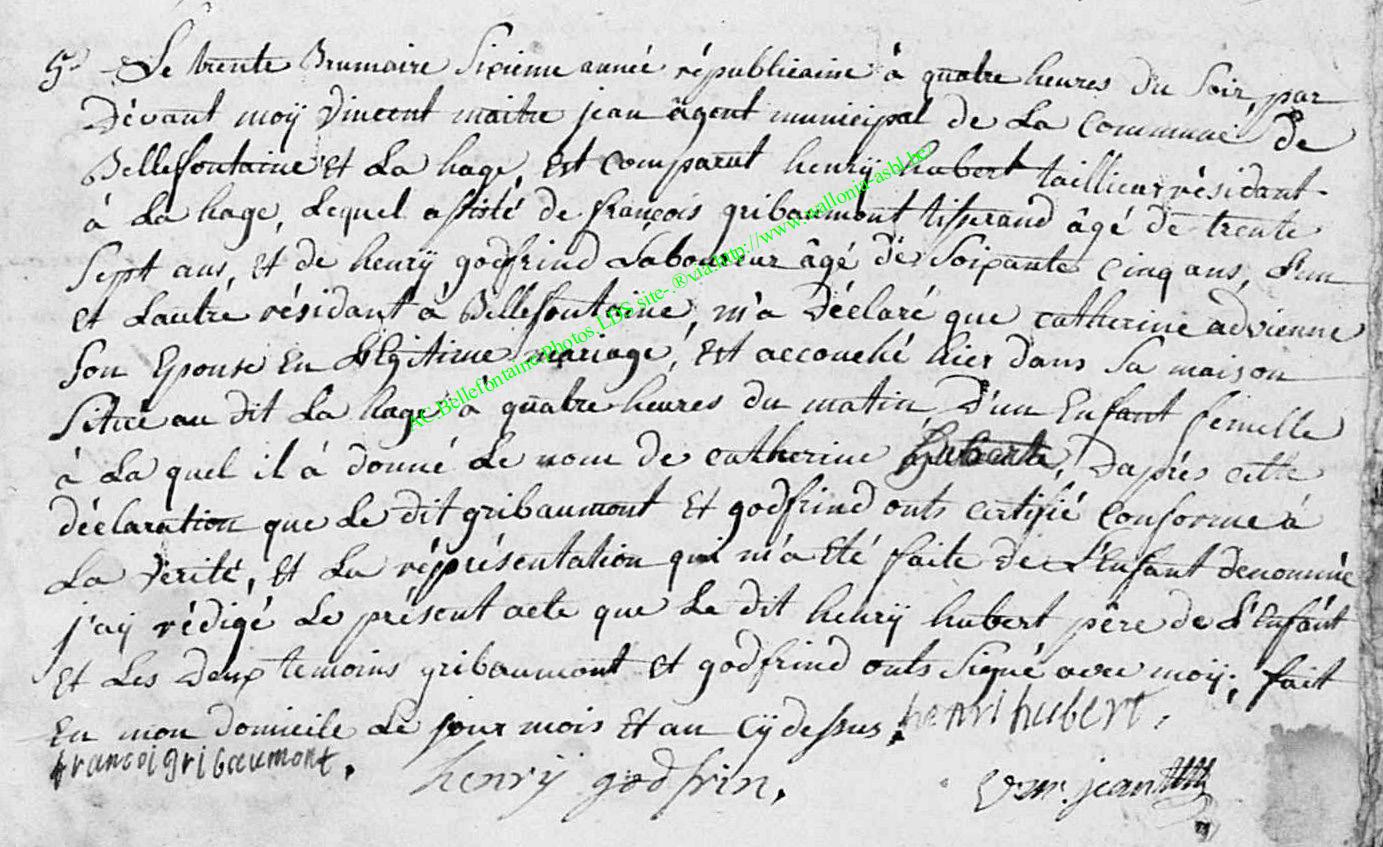 5. Le trente Brumaire Sixieme année républicaine à quatre heures du Soir, par
Dévant moÿ Vincent maitre jean âgent municipal de La Commune de
Bellefontaine et La hage, est comparut henrÿ hubert taillieur résidant
à La hage, Lequel assisté de françois gribaumont tisserand âgé de trente
Sept ans, et de henrÿ godfrind Laboureur âgé de Soixante cinq ans, L'un
et Lautre résidant à Bellefontaine, m'a Déclaré que catherine advienne
Son Epouse En Légitime mariage, Est accouché hier dans Sa maison
Située au dit La hage à quatre heures du matin D'un Enfant femelle
à La quel il à donné Le nom de catherine huberte, Daprés cette
déclaration que Le dit gribaumont Et godfrind onts certifié Conforme à
La Verité, Et La réprésentation qui m'a Eté faite de L'Enfant denommé
j'aÿ rédigé Le présent acte que Le dit henrÿ hubert pére de L'Enfant
Et Les Deux temoins gribaumont et godfrind onts Signé avec moÿ; fait
En mon domicile Le jour mois Et an Cÿdessus. henri hubert.
francoi gribaumont. henrÿ godfrin. V mr. jean
AC.Bellefontaine-Photos LDS site-®via:http://www.wallonia-asbl.be/